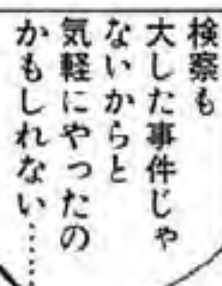 検察も
大した事件じゃ
ないからと
気軽にやったの
かもしれない……